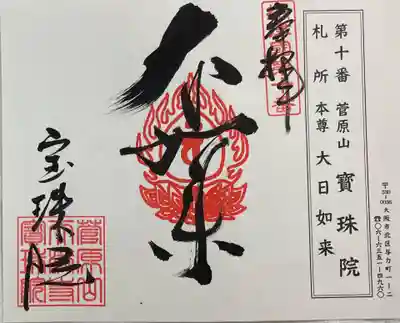 第十番 菅原山 寶珠院
札所本尊 大日如来
〒530-0036 大阪市北区与力町一ー二
☎〇六ー六三五一ー四九六〇
奉拝
大日如来
宝珠院
菅原山